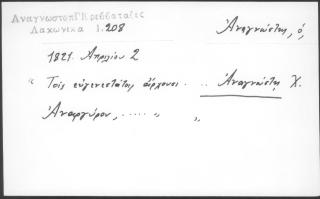 Αναγνωστοπ
Λακωνικα 1.208
Ἀναγνώστης, ὁ,
1821. Ἀπριλίου 2
" Τοῖς εὐγενεστάτοις ἄρχουσι . .. Ἀναγνώστῃ Χ.
Ἀναργύρου, ..... " "